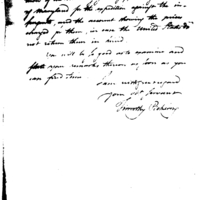 of Maryland for the expedition against the in-
surgents, and the account showing the prices
charged for them, in case the United States do
not return them in kind.
will be so good as to examine and
your remarks thereon as soon as you
can find time.
I am with great regard
your obt. servant
Timothy Pickering